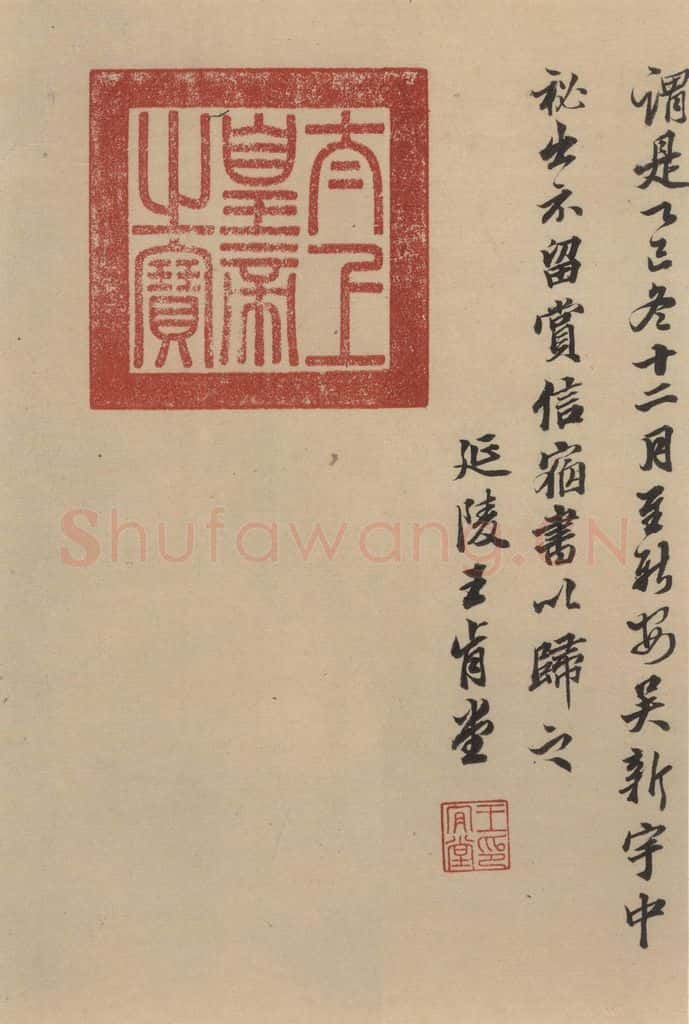 謂是乙巳冬十二月至新安吳新宇中
祕出示留賞信宿書以歸之
延陵王肯堂
王肯堂印
太上
皇帝
之寶
Shufawang.CN